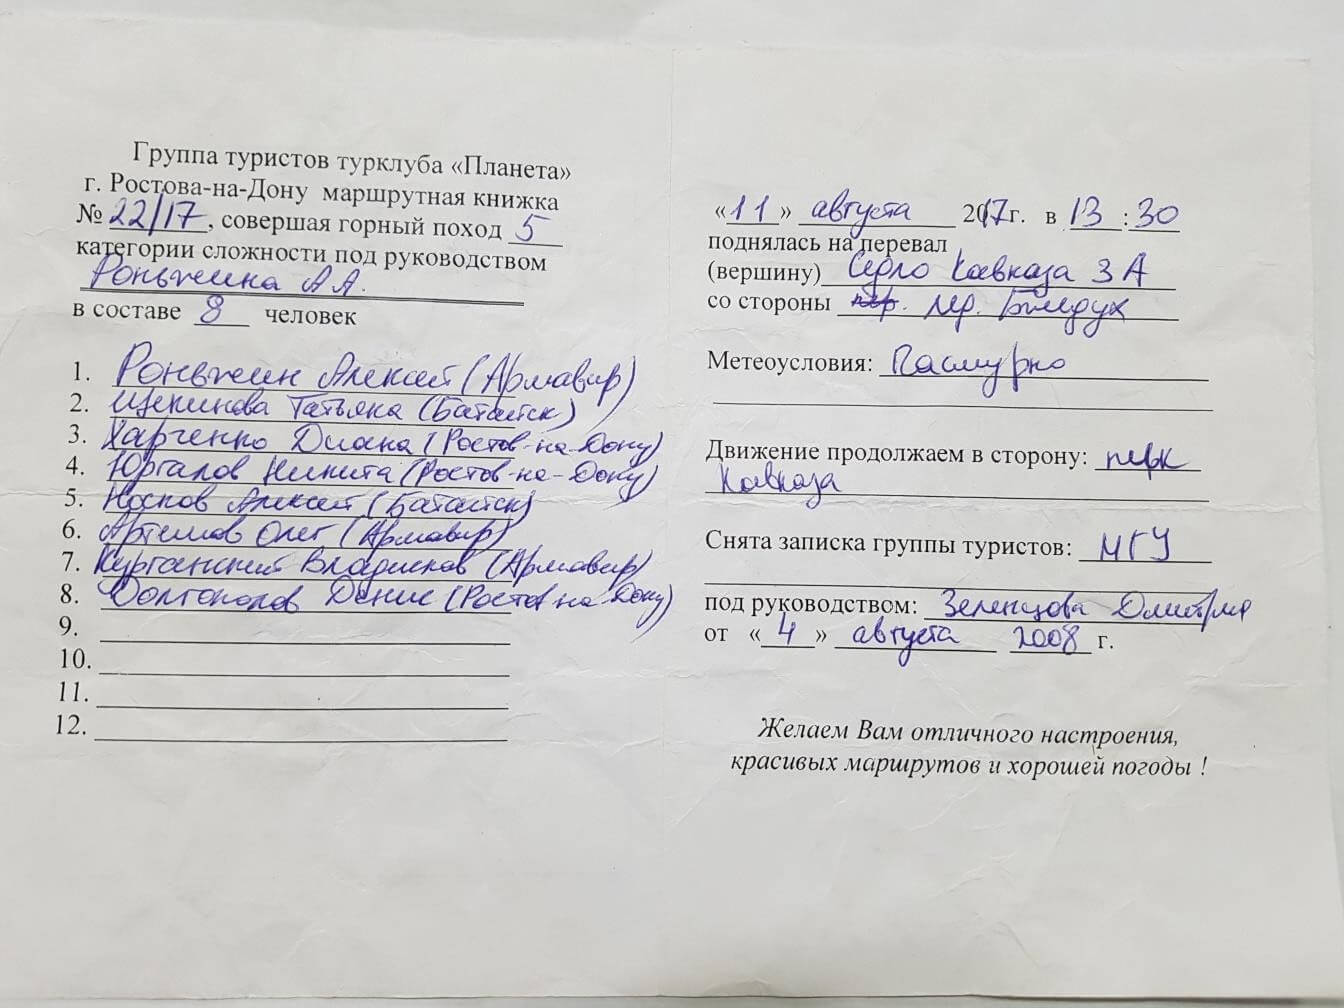 Группа туристов турклуба «Планета»
г. Ростова-на-Дону маршрутная книжка
№ 22/17, совершая горный поход 5
категории сложности под руководством
Роньжина А.А.
в составе 8 человек
1. Роньжин Алексей (Армавир)
2. Щекинова Татьяна (Батайск)
3. Харченко Диана (Ростов-на-Дону)
4. Юргалов Никита (Ростов-на-Дону)
5. Носков Алексей (Батайск)
6. Артемов Олег (Армавир)
7. Курганский Владислав (Армавир)
8. Долгополов Денис (Ростов-на-Дону)
9.
10.
11.
12.
«11» августа 2017г. в 13:30
поднялась на перевал
(вершину) Седло Кавказа 3А
со стороны пер. Бжедух
Метеоусловия: Пасмурно
Движение продолжаем в сторону:
Кавказа
Снята записка группы туристов: МГУ
под руководством: Зеленцова Дмитрия
от «4» августа 2008 г.
Желаем Вам отличного настроения,
красивых маршрутов и хорошей погоды !